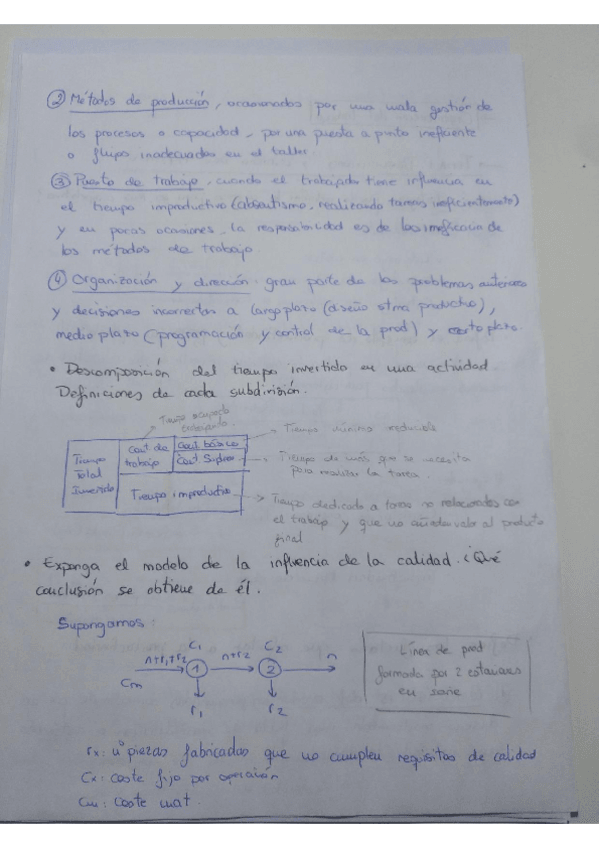 ② Métodos de producción, ocasionados por una mala gestión de
los procesos o capacidad, por una puesta a punto ineficiente
o flujos inadecuados en el taller.
③ Puesto de trabajo, cuando el trabajador tiene influencia en
el tiempo improductivo (absentismo, realizando tareas ineficientemente)
y en pocas ocasiones, la responsabilidad es de
los métodos de trabajo.
④ Organización y dirección: gran parte de los problemas anteriores
y decisiones incorrectas a largo plazo (diseño stma productivo),
medio plazo (programación y control de la prod) y corto plazo.
• Descomposición del tiempo invertido en una actividad.
Definiciones de cada subdivisión.
Tiempo ocupado
trabajando
Tiempo
Total
Invertido
Cont. de
trabajo
Cont. básico
Cont. Suplem
Tiempo improductivo
Tiempo mínimo reducible
Tiempo de más que se necesita
para realizar la tarea.
Tiempo dedicado a tareas no relacionadas con
el trabajo y que no añade valor al producto
final
• Exponga el modelo de la influencia de la calidad. ¿Qué
conclusión se obtiene de él.
Supongamos:
n+r1+r2
Cm
C1
1
r1
n+r2
C2
2
r2
n
Línea de prod
formada por 2 estaciones
en serie
rx: nº piezas fabricadas que no cumplen requisitos de calidad
Cx: coste fijo por operación
Cm: coste mat.